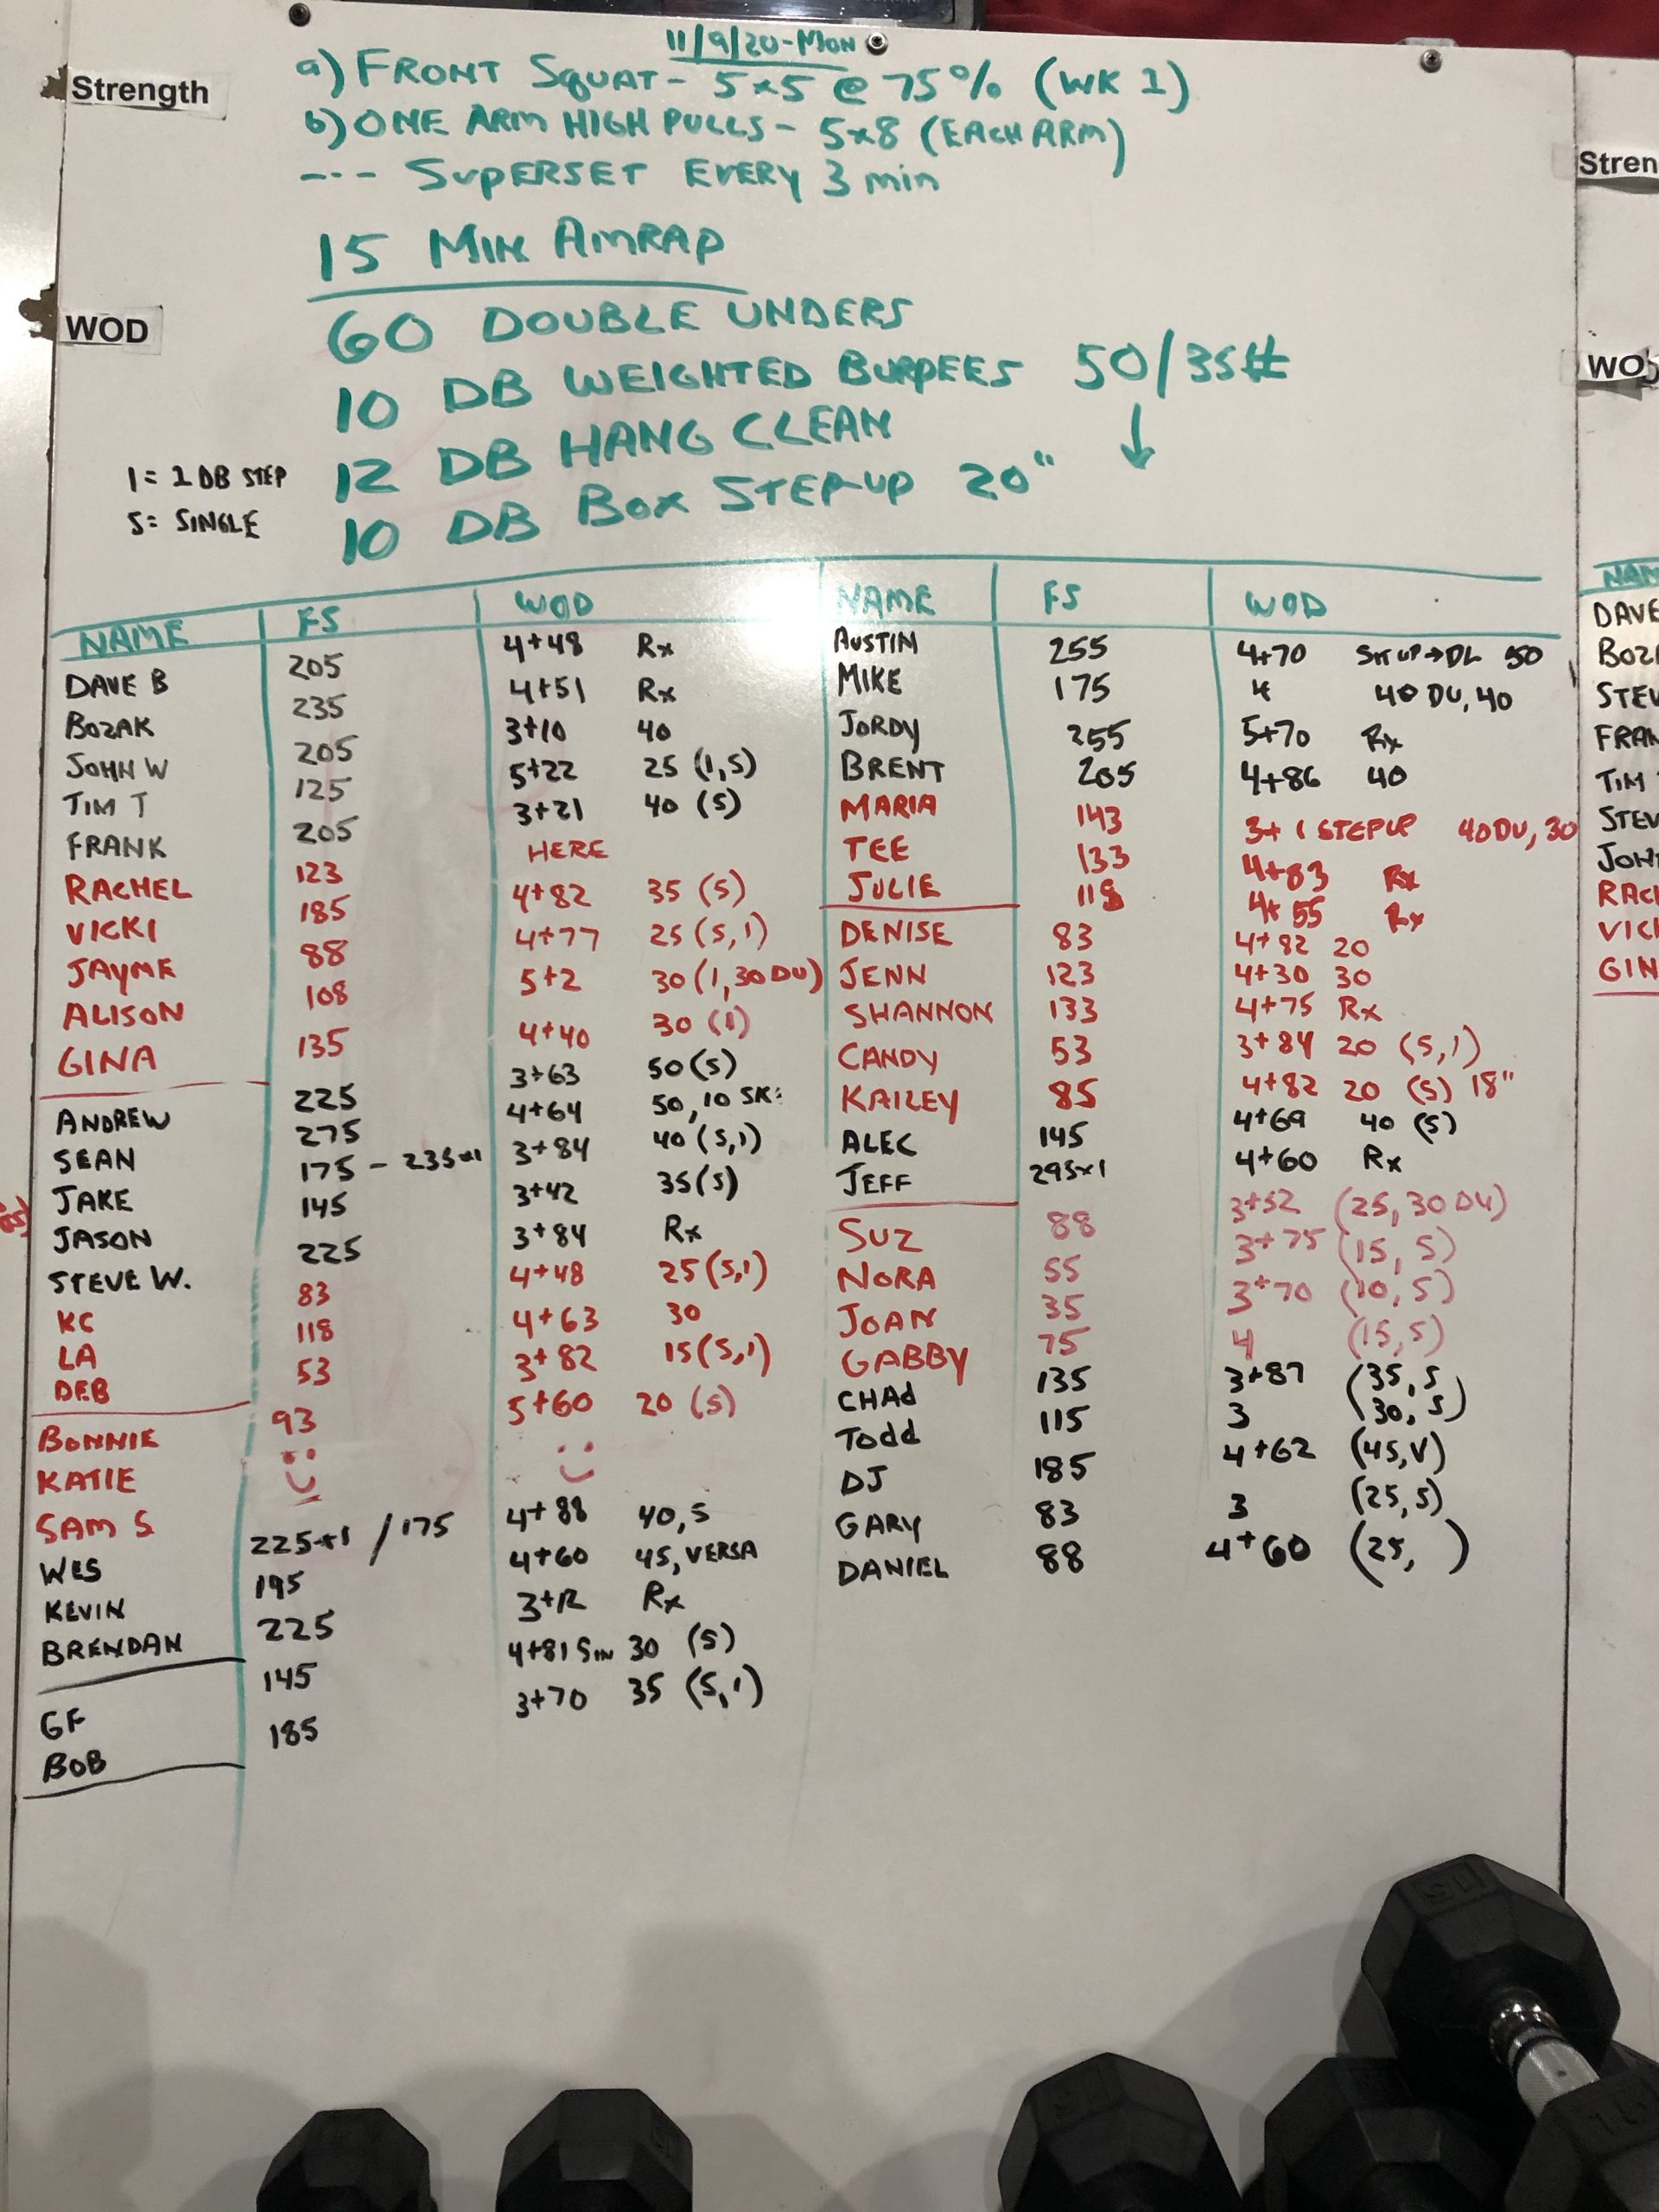 11/9/20-MON
Strength
a) FRONT SQUAT - 5x5 @ 75% (WK 1)
b) ONE ARM HIGH PULLS - 5x8 (EACH ARM)
--- SUPERSET EVERY 3 min
15 MIN AMRAP
WOD
60 DOUBLE UNDERS
10 DB WEIGHTED BURPEES 50/35#
12 DB HANG CLEAN ↓
10 DB BOX STEP-UP 20"
1 = 1 DB STEP
S = SINGLE
NAME FS WOD
DAVE B 205 4+48 Rx
BOZAK 235 4+51 Rx
JOHN W 205 3+10 40
TIM T 125 5+22 25 (1,S)
FRANK 205 3+21 40 (S)
RACHEL 123 HERE
VICKI 185 4+82 35 (S)
JAYME 88 4+77 25 (S,1)
ALISON 108 5+2 30 (1,30 DU)
GINA 135 4+40 30 (1)
ANDREW 225 3+63 50 (S)
SEAN 275 4+64 50, 10 SK:
JAKE 175 - 235x1 3+84 40 (S,1)
JASON 145 3+42 35 (S)
STEVE W. 225 3+84 Rx
KC 83 4+48 25 (S,1)
LA 118 4+63 30
DEB 53 3+82 15 (S,1)
BONNIE 93 5+60 20 (S)
KATIE
SAM S
WES 225x1 / 175 4+88 40,S
KEVIN 195 4+60 45, VERSA
BRENDAN 225 3+12 Rx
GF 145 4+81 SIN 30 (S)
BOB 185 3+70 35 (S,1)
NAME FS WOD
AUSTIN 255 4+70 SIT UP→DL 50
MIKE 175 4 40 DU, 40
JORDY 255 5+70 Rx
BRENT 205 4+86 40
MARIA 143 3+ 1 STEPUP 40DU, 30
TEE 133 4+83 Rx
JULIE 118 4+55 Rx
DENISE 83 4+82 20
JENN 123 4+30 30
SHANNON 133 4+75 Rx
CANDY 53 3+84 20 (S,1)
KAILEY 85 4+82 20 (S) 18"
ALEC 145 4+69 40 (S)
JEFF 295x1 4+60 Rx
SUZ 88 3+52 (25, 30 DU)
NORA 55 3+75 (15, S)
JOAN 35 3+70 (10, S)
GABBY 75 4 (15, S)
CHAd 135 3+87 (35, S
Todd 115 3 30, S)
DJ 185 4+62 (45, V)
GARY 83 3 (25, S)
DANIEL 88 4+60 (25, )
Stren
WO
NAM
DAVE
BOZA
STEV
FRAN
TIM
STEV
JOHN
RACH
VICK
GIN